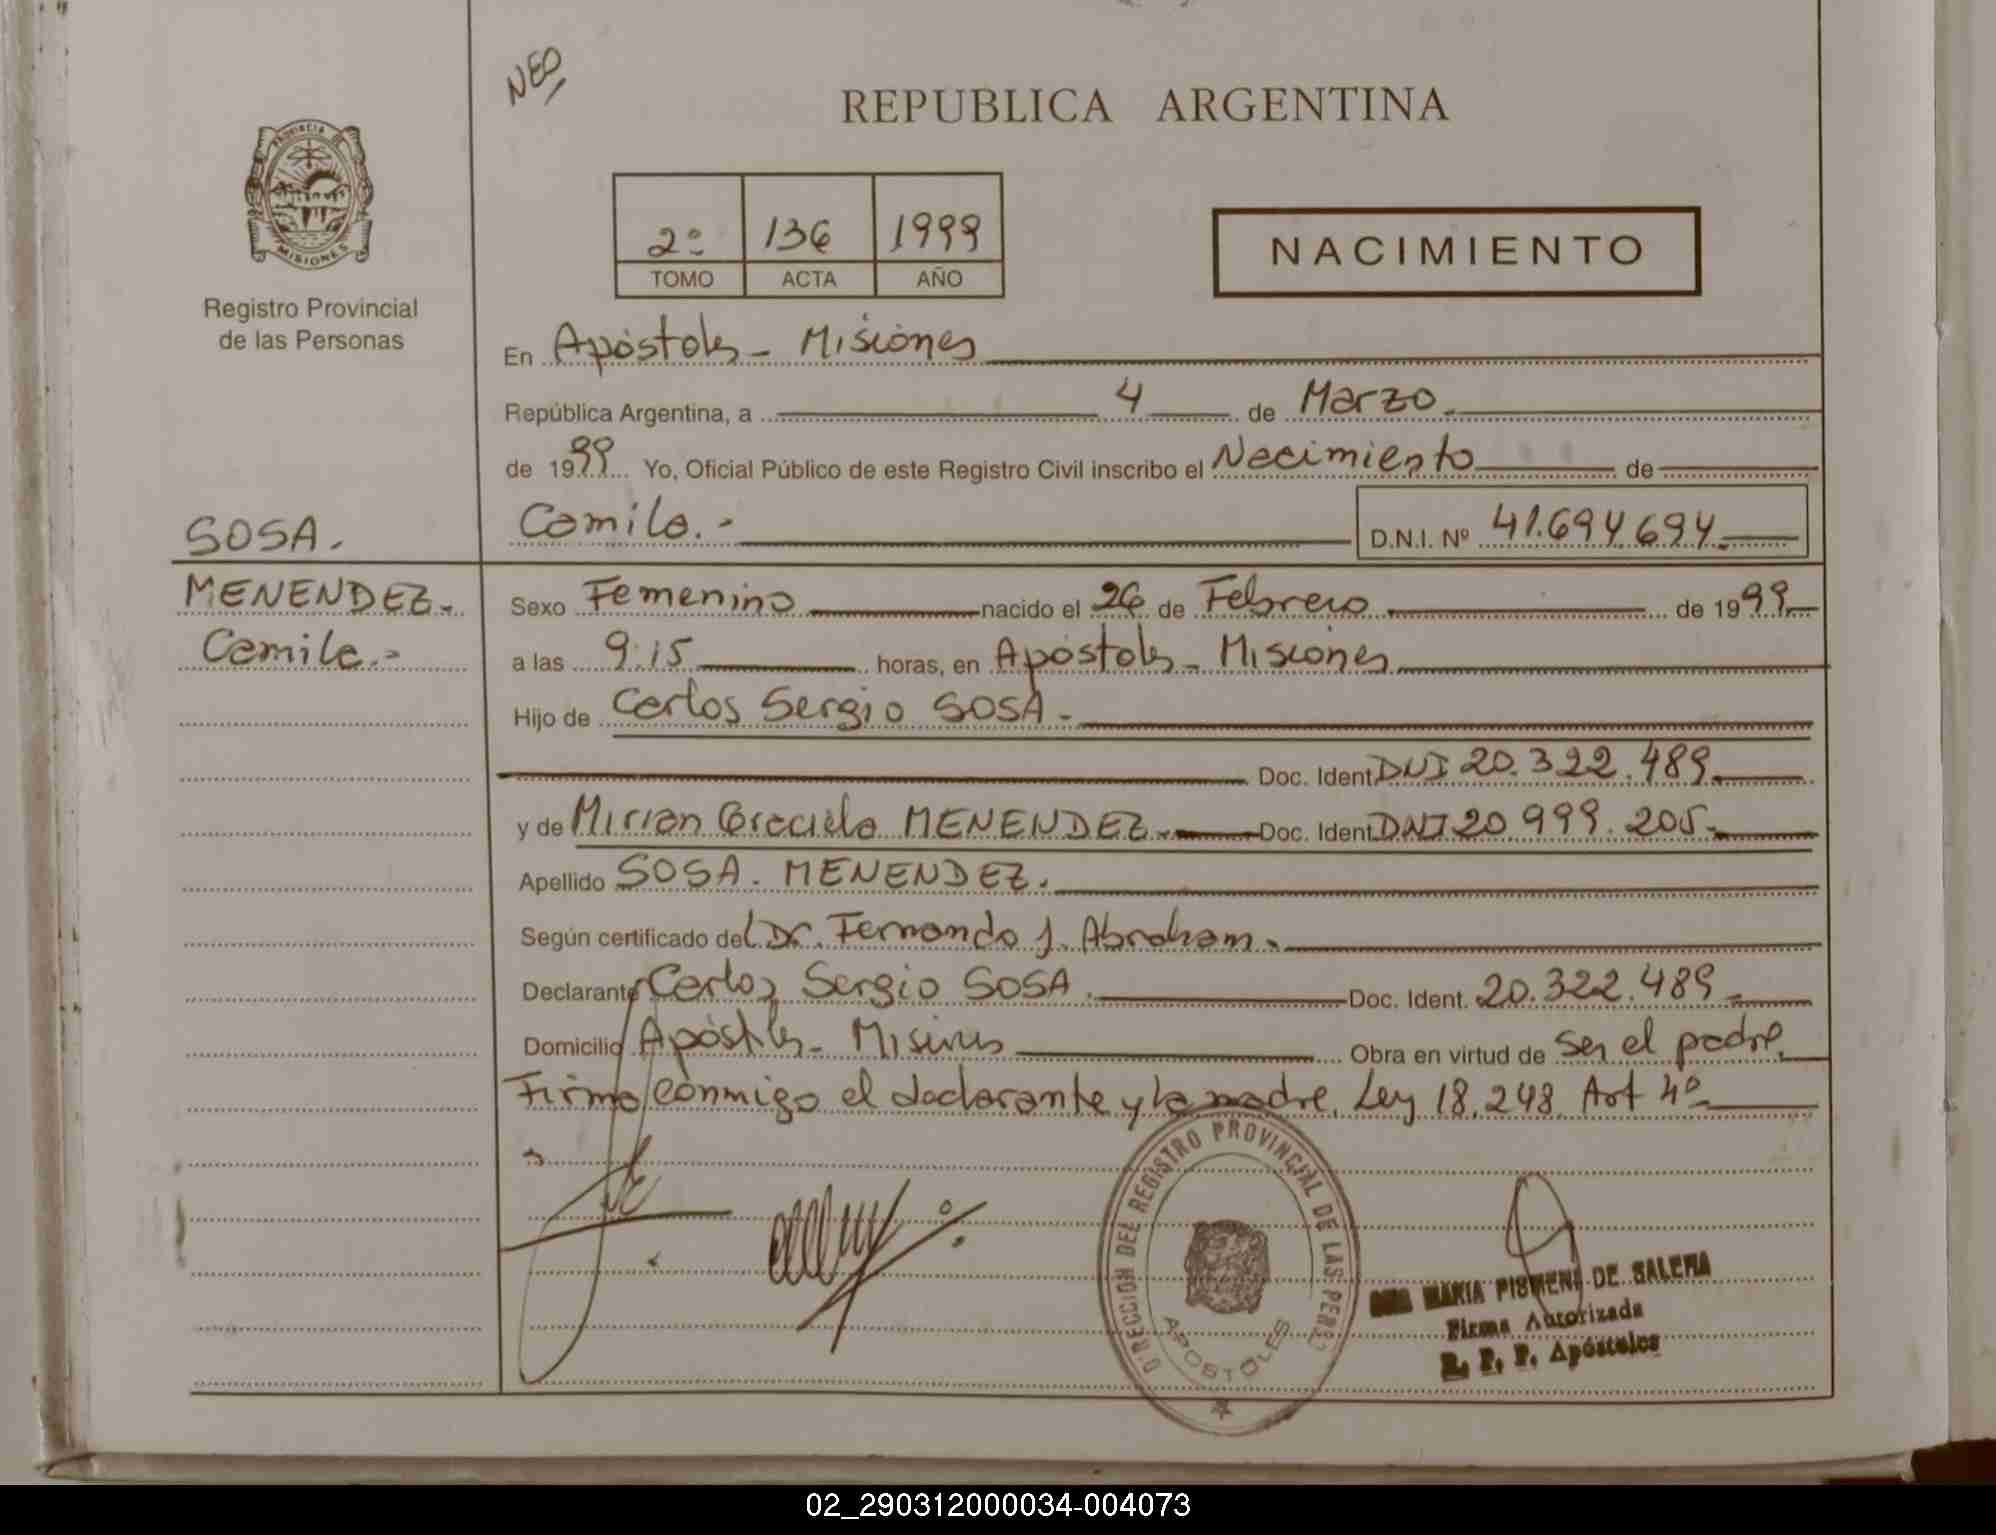 NEO
REPUBLICA ARGENTINA
PROVINCIA DE
MISIONES
Registro Provincial
de las Personas
2º 136 1999
TOMO ACTA AÑO
NACIMIENTO
En Apóstoles - Misiones
República Argentina, a 4 de Marzo.
de 1999 Yo, Oficial Público de este Registro Civil inscribo el Nacimiento de
SOSA.
Camila.-
D.N.I. Nº 41.694.694.
MENENDEZ.
Camila.-
Sexo Femenino nacido el 26 de Febrero de 1999.
a las 9:15 horas, en Apóstoles - Misiones
Hijo de Carlos Sergio SOSA.-
Doc. Ident. DNI 20.322.489.
y de Mirian Graciela MENENDEZ.- Doc. Ident. DNI 20.999.205.
Apellido SOSA. MENENDEZ.
Según certificado del Dr. Fernando J. Abraham.
Declarante Carlos Sergio SOSA. Doc. Ident. 20.322.489.
Domicilio Apóstoles - Misiones Obra en virtud de ser el padre.
Firma conmigo el declarante y la madre. Ley 18.248 Art 4º
DIRECCION DEL REGISTRO PROVINCIAL DE LAS PERS.
APOSTOLES
MARIA PISMENI DE SALEMA
Firma Autorizada
R. P. P. Apóstoles
02_290312000034-004073